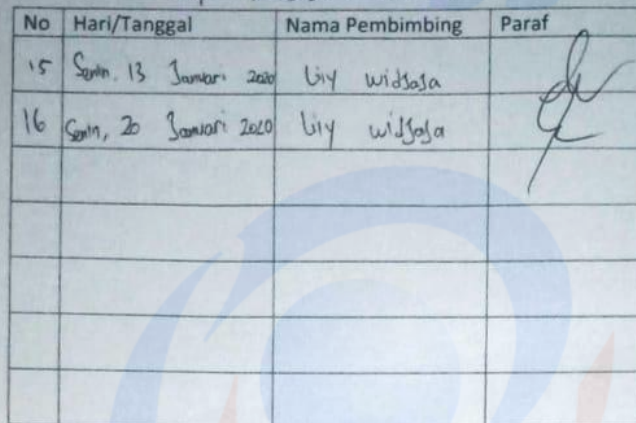 No Hari/Tanggal Nama Pembimbing Paraf
15 Senin, 13 Januari 2020 Liy Widjaja
16 Senin, 20 Januari 2020 Liy Widjaja